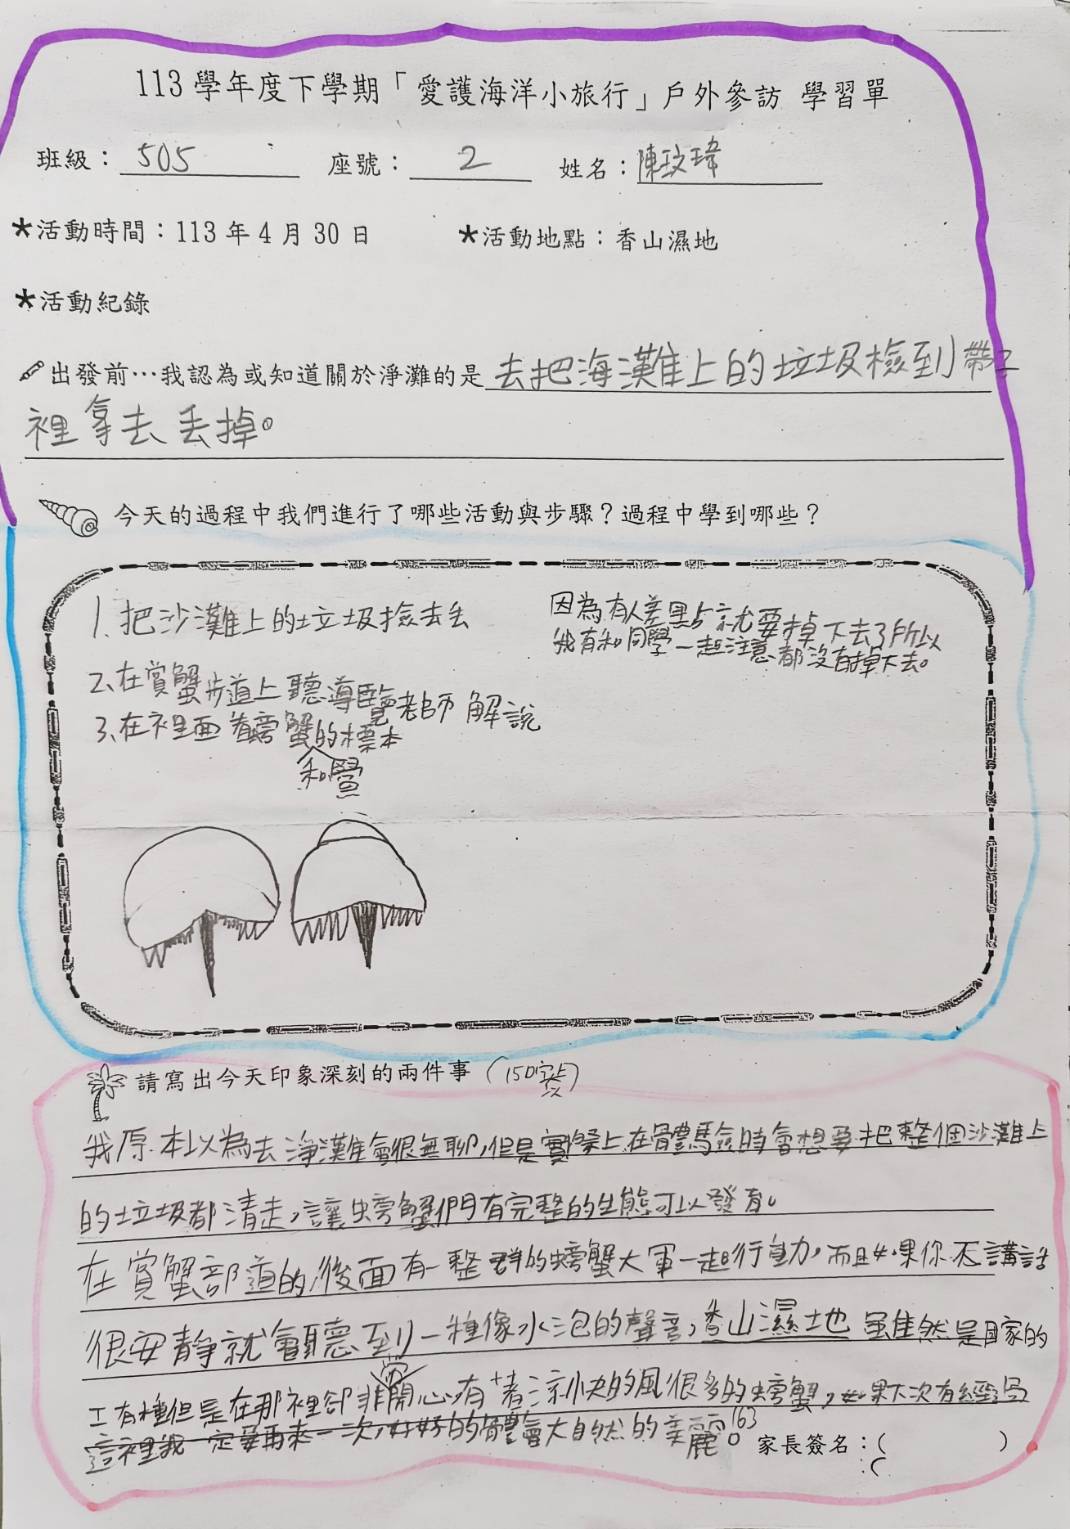 113 學年度下學期「愛護海洋小旅行」戶外參訪 學習單
班級：505 座號：2 姓名：陳玟瑋
*活動時間：113 年 4 月 30 日 *活動地點：香山濕地
*活動紀錄
出發前…我認為或知道關於淨灘的是去把海灘上的垃圾檢到帶子
裡拿去丟掉。
今天的過程中我們進行了哪些活動與步驟？過程中學到哪些？
1. 把沙灘上的垃圾撿去丟
2.在賞蟹步道上聽導覽老師解說
3.在裡面看螃蟹的標本
和鱟
因為有人差點就要掉下去了所以
我有和同學一起注意都沒有掉下去。
請寫出今天印象深刻的兩件事（150字
我原本以為去淨灘會很無聊，但是實際上在體驗時會想要把整個沙灘上
的垃圾都清走，讓螃蟹們有完整的生態可以發育。
在賞蟹部道的後面有一整群的螃蟹大軍一起行動，而且如果你不講話
很安靜就會聽到一種像水泡的聲音，香山濕地雖然是自家的
工有種但是在那裡卻非常開心有著涼快的風很多的螃蟹，如果下次有經過
這裡我一定要再來一次，好好的體會大自然的美麗。163
家長簽名：( )